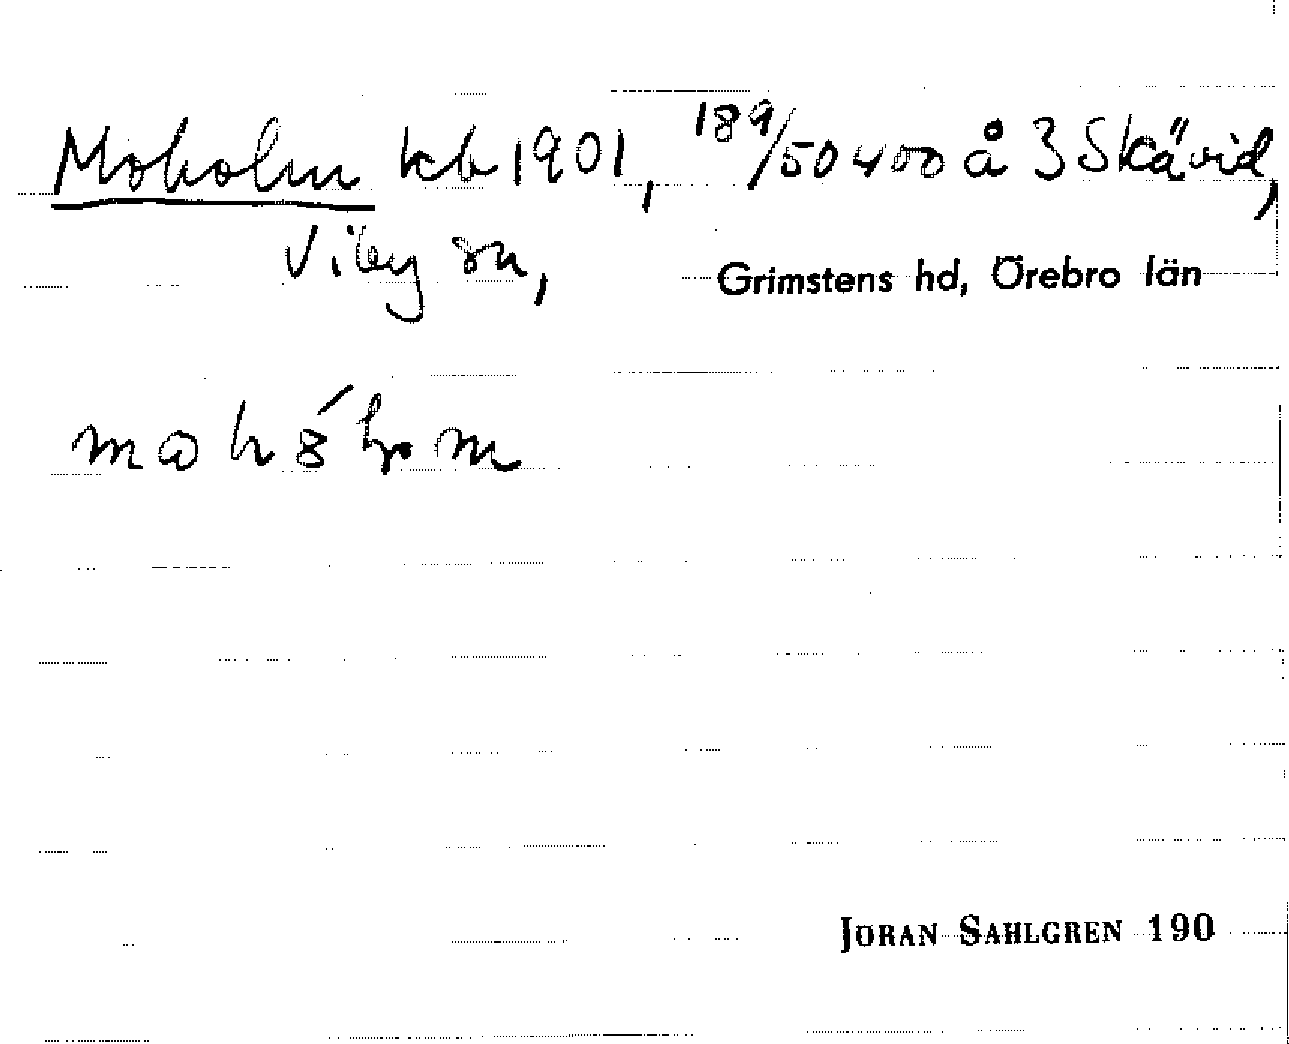 Moholm kb 1901, 189/50400 å 3 Skävid,
Viby sn, Grimstens hd, Örebro län
JÖRAN SAHLGREN 190